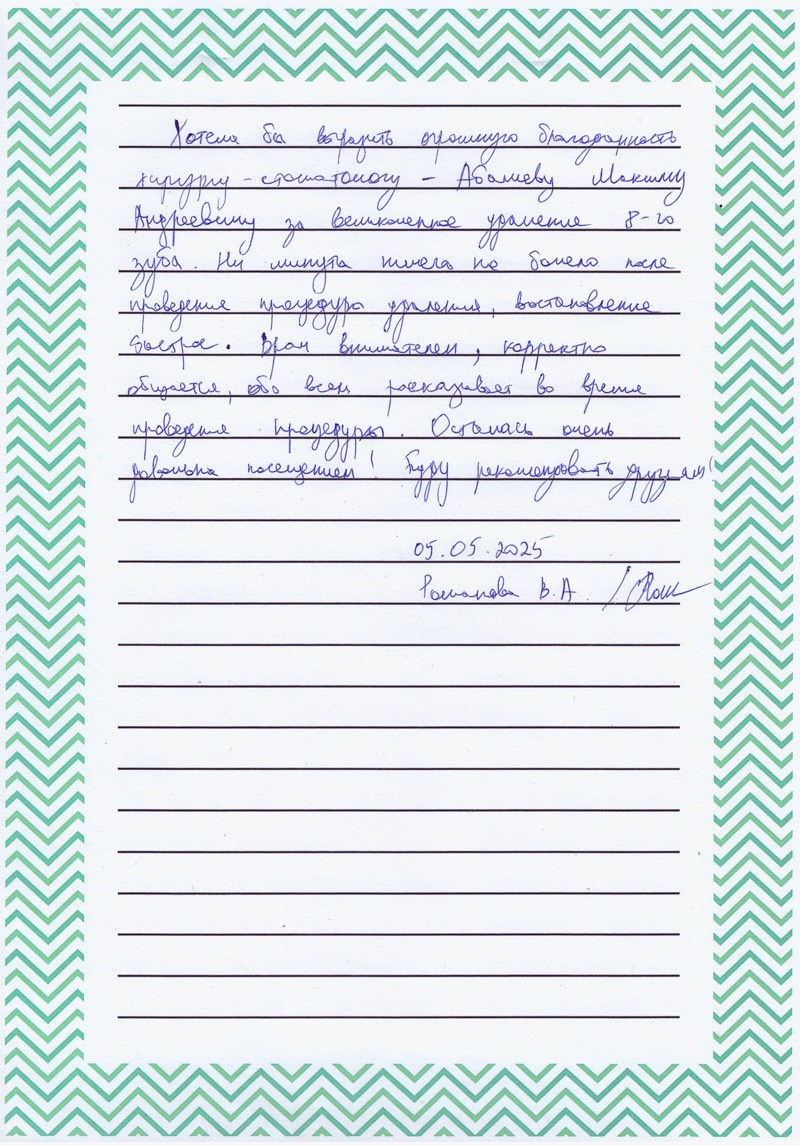 Хотела бы выразить огромную благодарность
хирургу-стоматологу - Абалиеву Максиму
Андреевичу за великолепное удаление 8-го
зуба. Ни минута ничего не болело после
проведения процедуры удаления, востановление
быстрое. Врач внимателен, корректно
общается, обо всем расказывает во время
проведения процедуры. Осталась очень
довольна посещением! Буду рекомендовать друзьям!
05.05.2025
В.А.